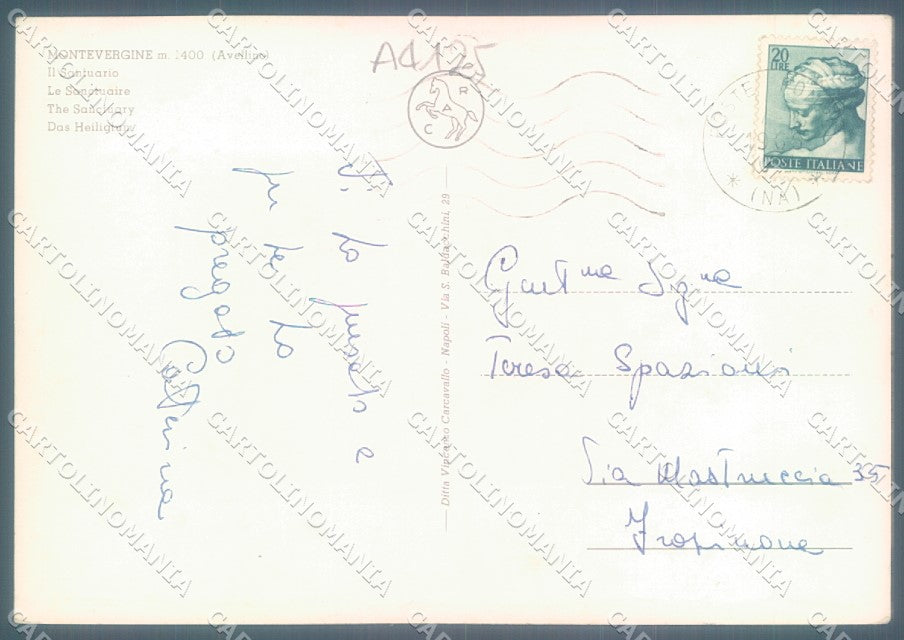 MONTEVERGINE m. 1400 (Avellino)
Il Santuario
Le Sanctuaire
The Sanctuary
Das Heiligtum
A4125
C A R
20
LIRE
POSTE ITALIANE
(NA)
Vi ho pensato e
per te ho
pregato
Caterina
Ditta Vincenzo Carcavallo - Napoli - Via S. Baldacchini, 29
Gent.ma Sig.na
Teresa Spaziani
Via Mastruccia 35
Frosinone
CARTOLINOMANIA